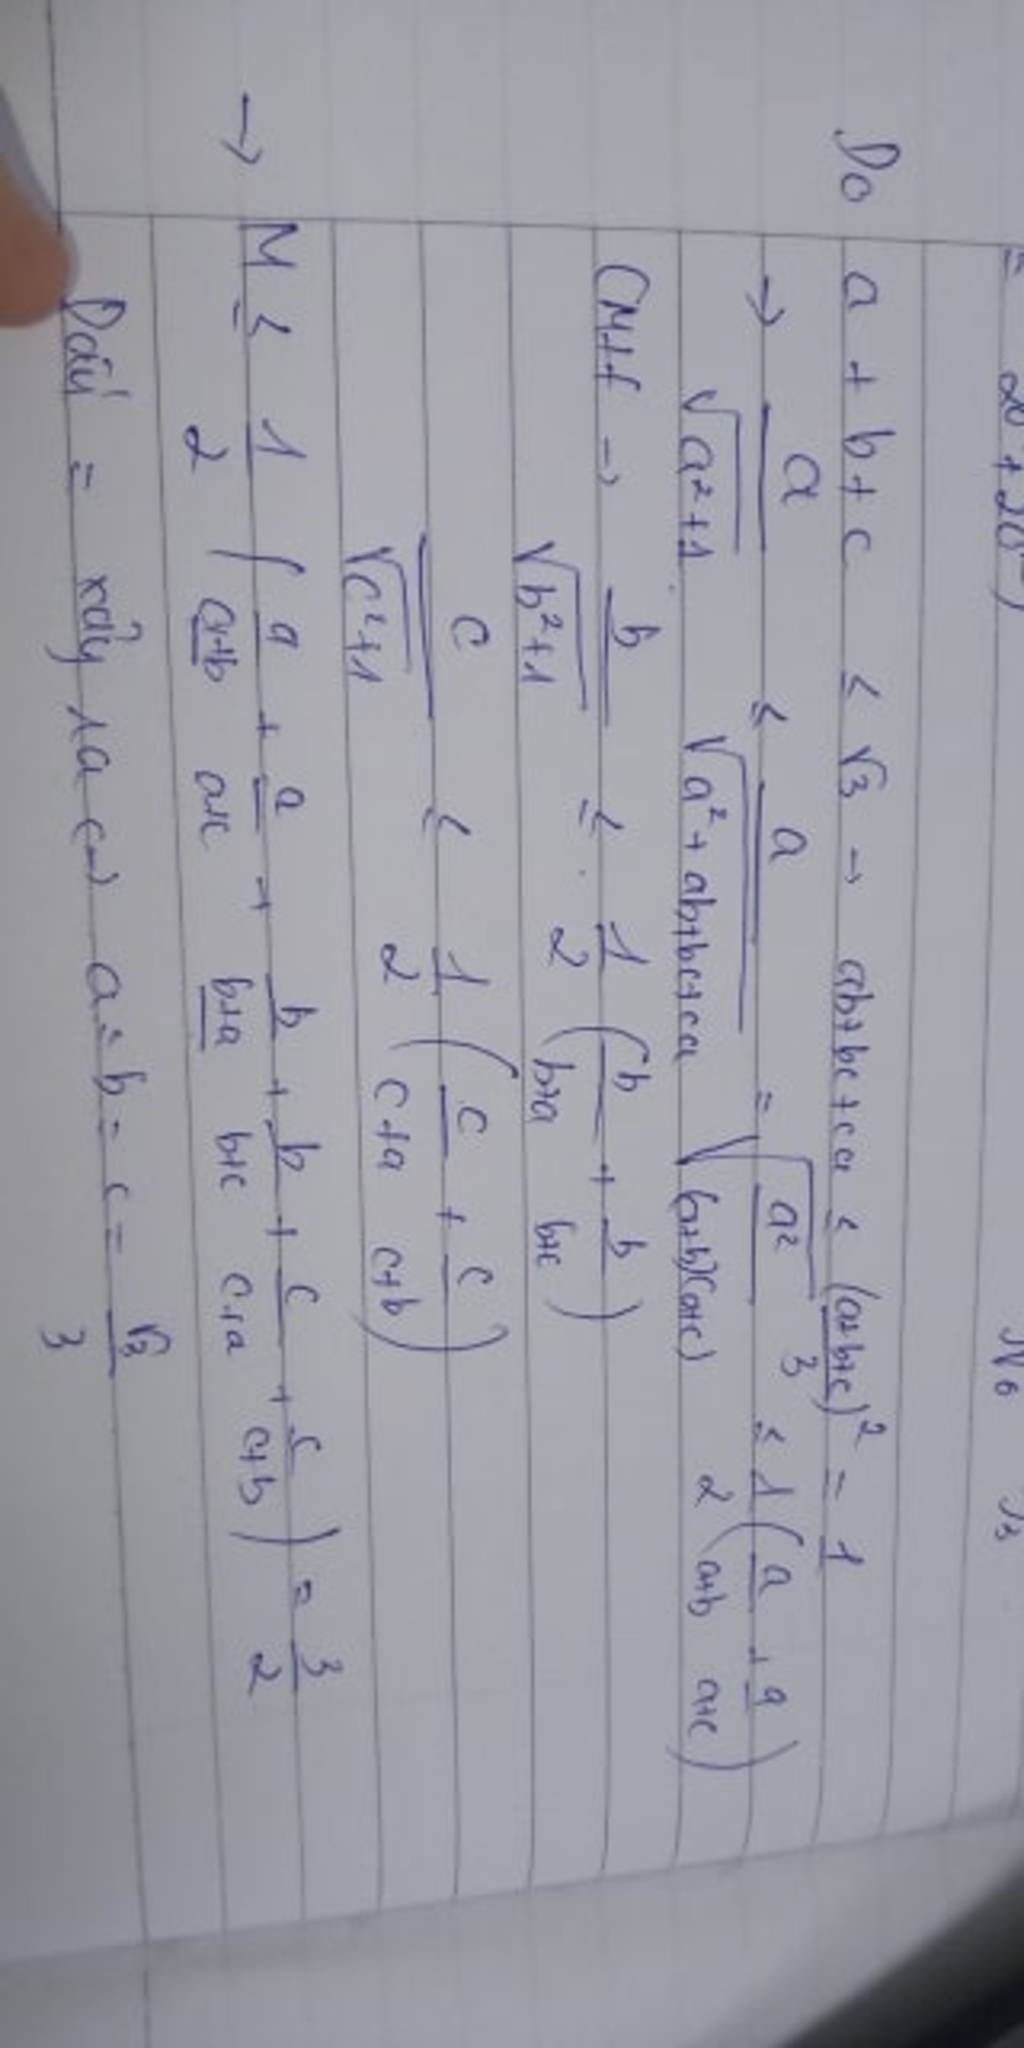 = 20 + 20
√6 √3
Do a + b + c ≤ √3 → ab+bc+ca ≤ (a+b+c)²/3 = 1
→ a/√(a²+1) ≤ a/√(a²+ab+bc+ca) = √(a²/(a+b)(a+c)) ≤ 1/2 (a/(a+b) + a/(a+c))
CMTT → b/√(b²+1) ≤ 1/2 (b/(b+a) + b/(b+c))
c/√(c²+1) ≤ 1/2 (c/(c+a) + c/(c+b))
→ M ≤ 1/2 (a/(a+b) + a/(a+c) + b/(b+a) + b/(b+c) + c/(c+a) + c/(c+b)) = 3/2
Dấu = xảy ra (=) a = b = c = √3/3